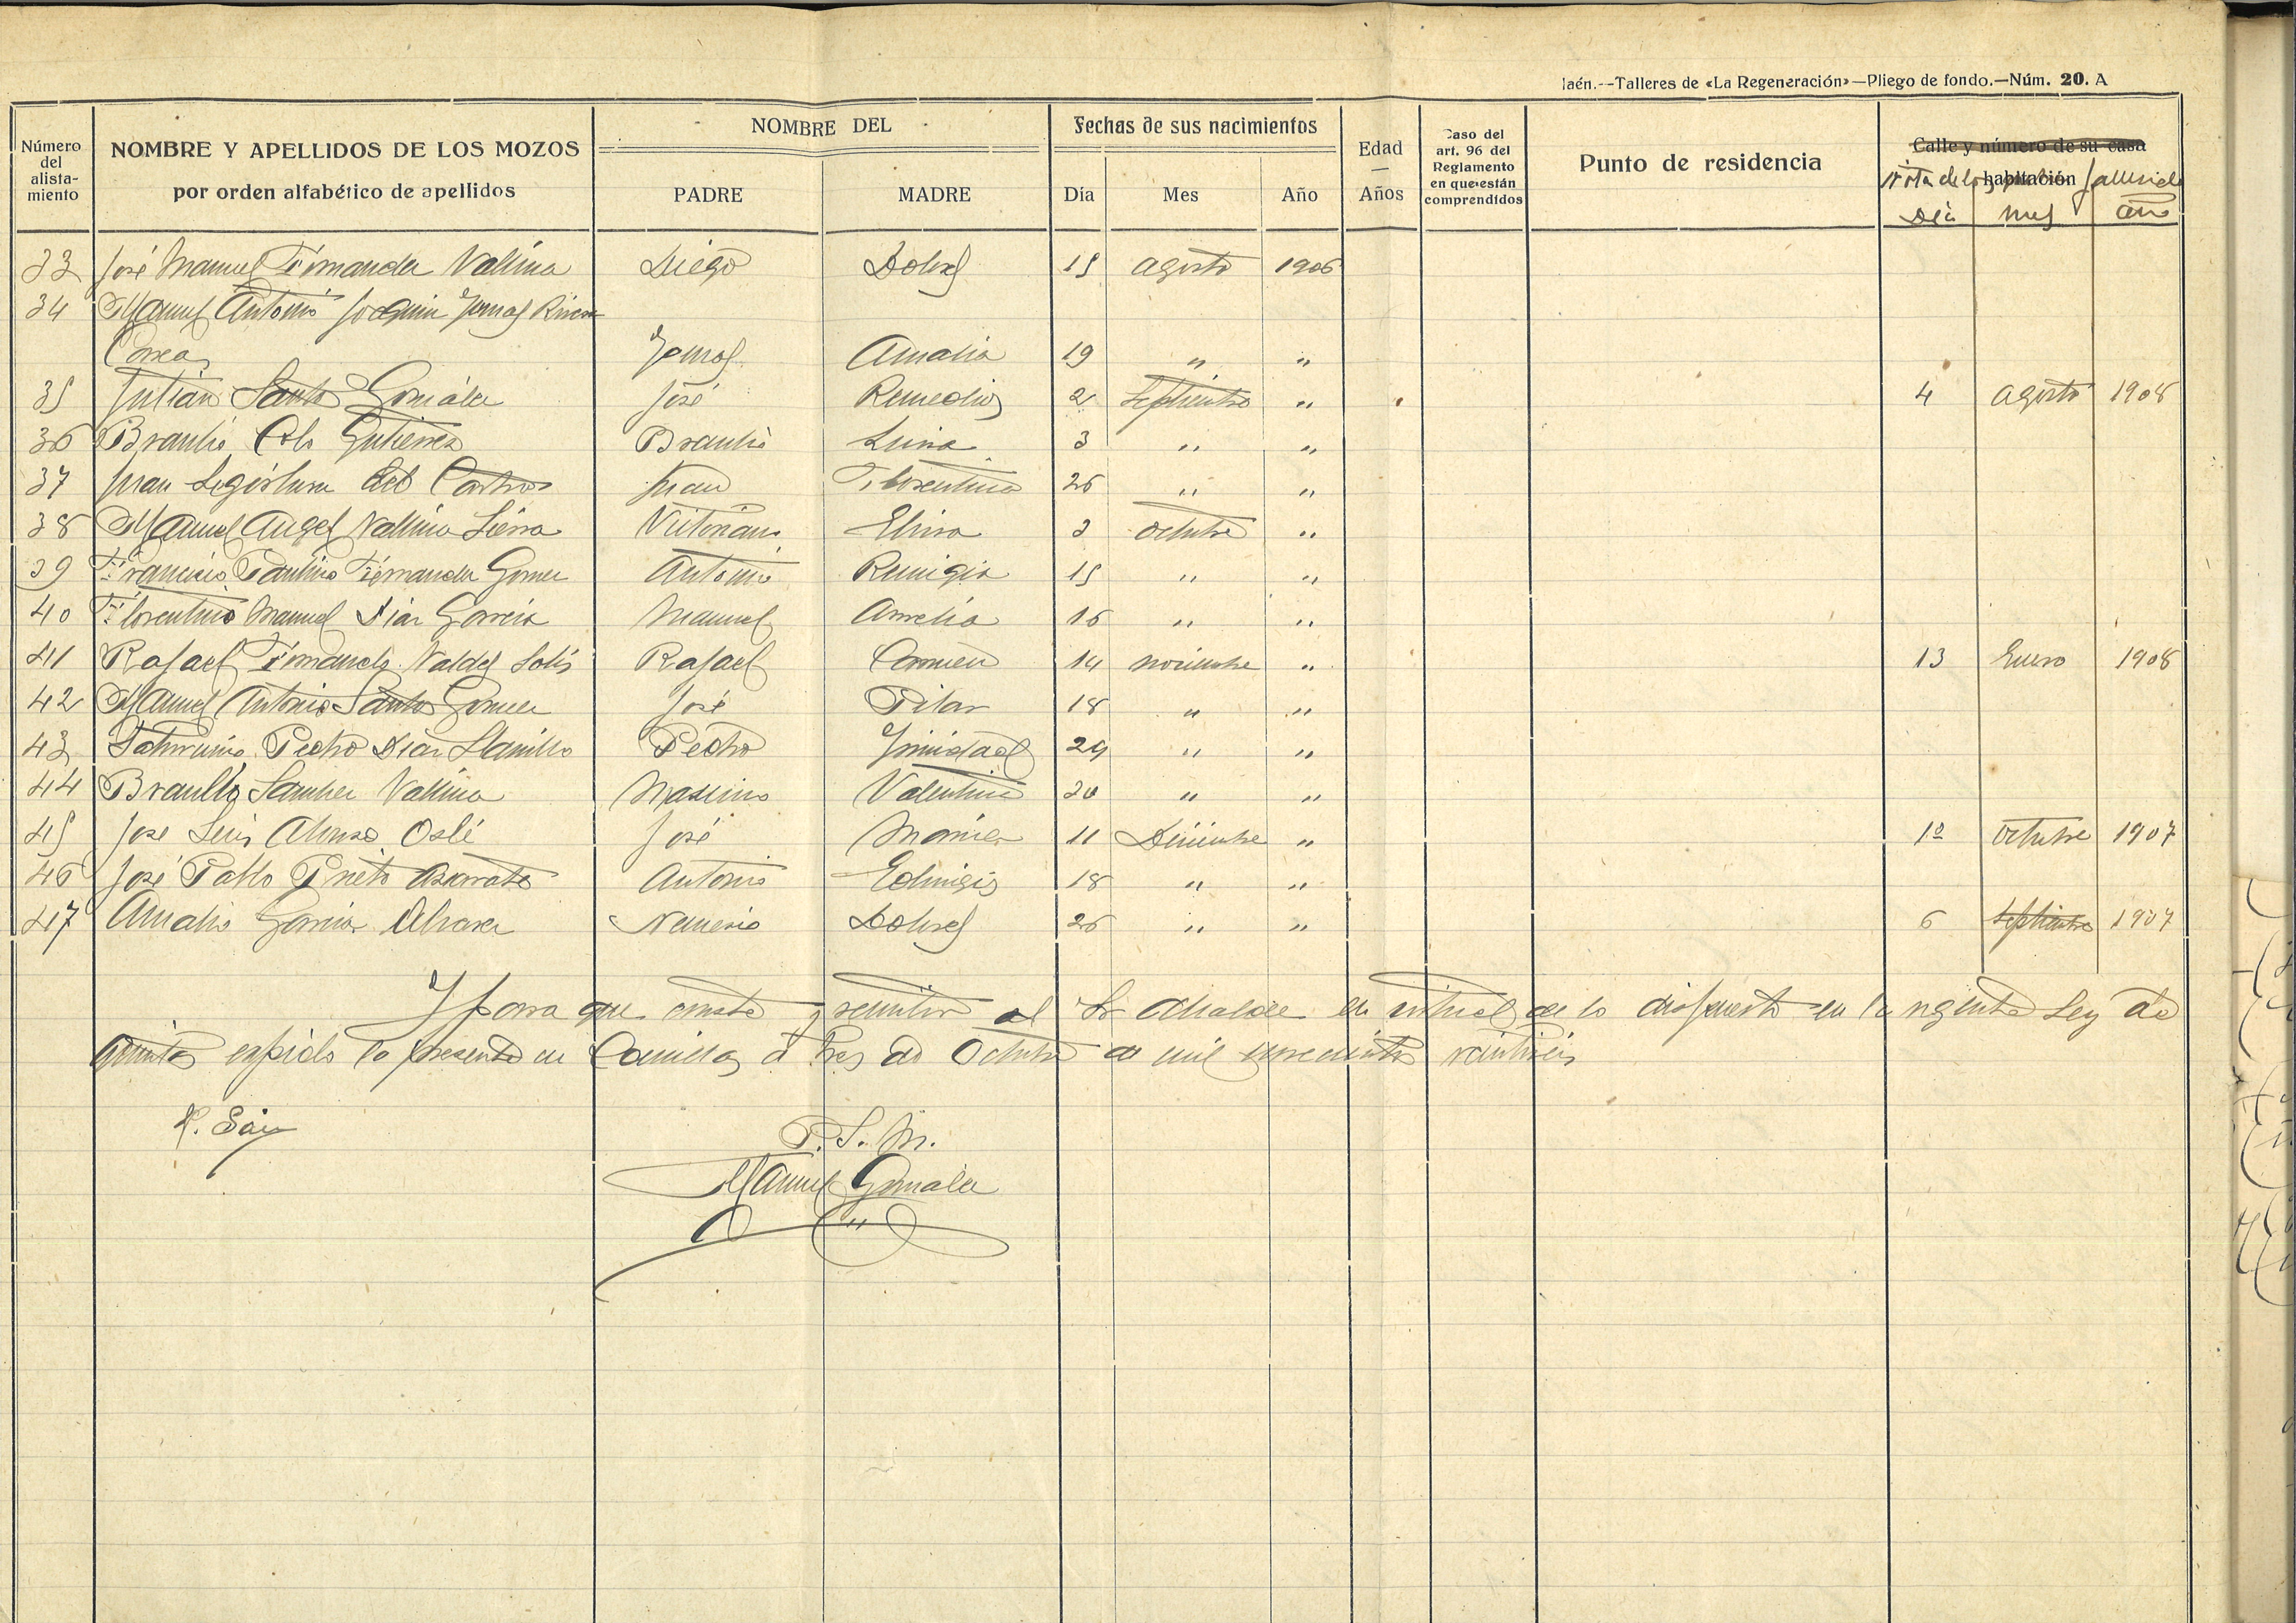 Jaén.--Talleres de «La Regeneración»—Pliego de fondo.—Núm. 20. A
Número del alista-miento NOMBRE Y APELLIDOS DE LOS MOZOS por orden alfabético de apellidos NOMBRE DEL PADRE MADRE Fechas de sus nacimientos Día Mes Año Edad — Años Caso del art. 96 del Reglamento en que están comprendidos Punto de residencia Calle y número de su casa habitación
Día mes año
33 José Manuel Fernandez Vallina Diego Dolores 15 agosto 1906
34 Manuel Antonio Joaquin Tomas Rivera
Correa Tomas Amalia 19 " "
35 Julian Santos González José Remedios 2 Septiembre " 4 agosto 1908
36 Braulio Coto Gutierrez Braulio Luisa 3 " "
37 Juan del Castro Juan Florentina 26 " "
38 Manuel Angel Vallina Sierra Victoriano Elvira 3 octubre "
39 Francisco Paulino Fernandez Gomez Antonio Remigia 15 " "
40 Florentino Manuel Diaz Garcia Manuel Aurelia 16 " "
41 Rafael Fernandez Valdes Solis Rafael Carmen 14 noviembre " 13 Enero 1908
42 Manuel Antonio Santos Gomez José Pilar 18 " "
43 Saturnino Pedro Diaz Pedro Trinidad 29 " "
44 Braulio Sanchez Vallina Maximo Valentina 30 " "
45 Jose Luis Alonso Oslé José Maria 11 Diciembre " 1º octubre 1907
46 José Pablo Prieto Azcarate Antonio 18 " "
47 Amalio Garcia Alvarez Nemesio Dolores 26 " " 6 septiembre 1907
Y para que conste y remitir al Sr Alcalde en virtud de lo dispuesto en la vigente Ley de
quintas expido la presente en a tres de Octubre de mil novecientos veintiseis
P.S.M.
Manuel Gonzalez